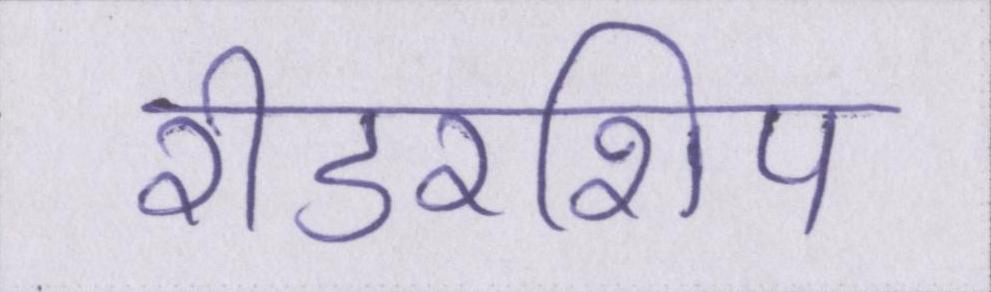 रीडरशिप